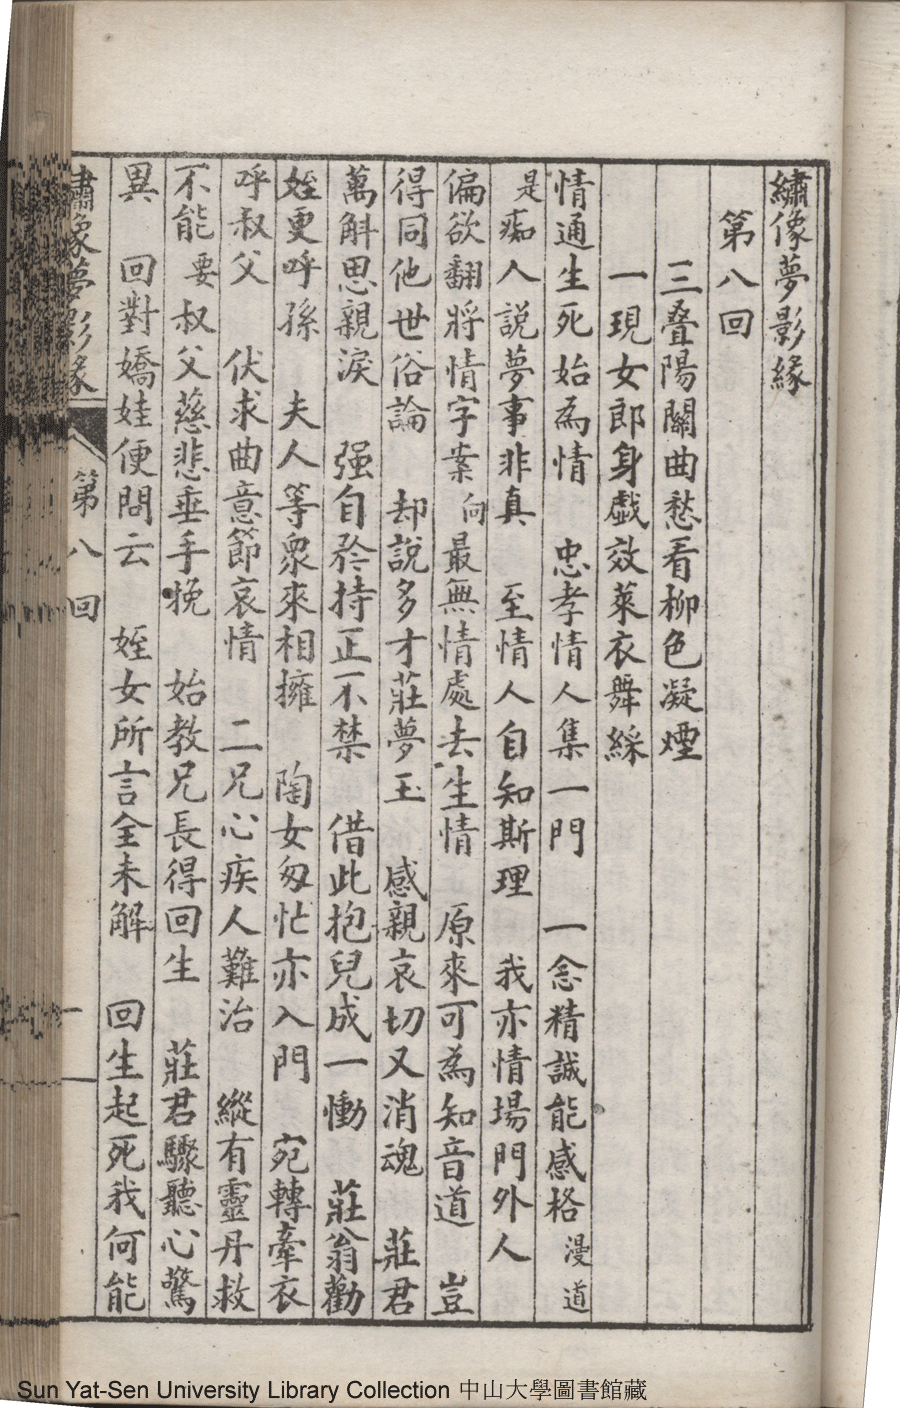 繡像夢影緣
第八回
三叠陽關曲愁看柳色凝煙
一現女郎身戲效萊衣舞綵
情通生死始為情 忠孝情人集一門 一念精誠能感格 漫道
是痴人説夢事非真 至情人自知斯理 我亦情場門外人
偏欲翻將情字案 向最無情處去生情 原來可為知音道 豈
得同他世俗論 却說多才莊夢玉 感親哀切又消魂 莊君
萬斛思親淚 强自矜持正不禁 借此抱兒成一慟 莊翁勸
姪更呼孫 夫人等衆來相擁 陶女匆忙亦入門 宛轉牽衣
呼叔父 伏求曲意節哀情 二兄心疾人難治 縱有靈丹救
不能 要叔父慈悲垂手挽 始教兄長得回生 莊君驟聽心驚
異 回對嬌娃便問云 姪女所言全未解 回生起死我何能
繡像夢影緣 第八回
Sun Yat-Sen University Library Collection 中山大學圖書館藏